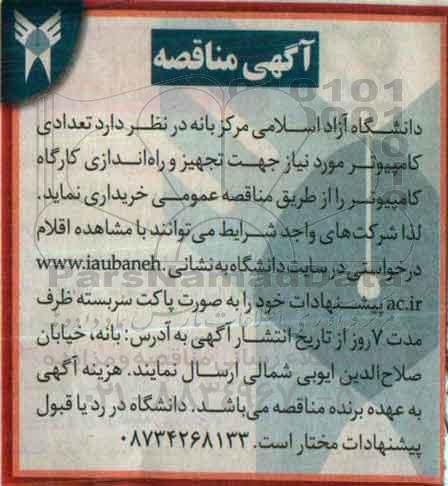 آگهی مناقصه
دانشگاه آزاد اسلامی مرکز بانه در نظر دارد تعدادی
کامپیوتر مورد نیاز جهت تجهیز و راه‌اندازی کارگاه
کامپیوتر را از طریق مناقصه عمومی خریداری نماید.
لذا شرکت‌های واجد شرایط می‌توانند با مشاهده اقلام
درخواستی در سایت دانشگاه به نشانی www.iaubaneh.
ac.ir پیشنهادات خود را به صورت پاکت سربسته ظرف
مدت ۷ روز از تاریخ انتشار آگهی به آدرس: بانه، خیابان
صلاح‌الدین ایوبی شمالی ارسال نمایند. هزینه آگهی
به عهده برنده مناقصه می‌باشد. دانشگاه در رد یا قبول
پیشنهادات مختار است. ۰۸۷۳۴۲۶۸۱۳۳
ParsNamadData